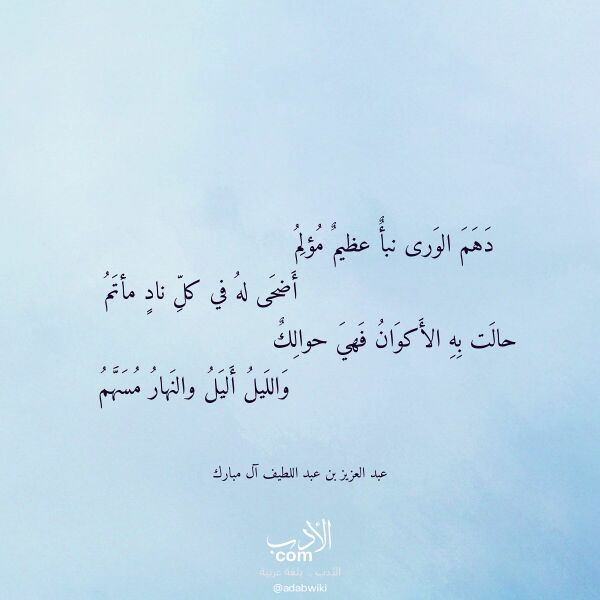 دَهَمَ الوَرى نبأٌ عظيمٌ مُؤلِمُ
أَضحَى لهُ في كلِّ نادٍ مأتَمُ
حالَت بِهِ الأَكوَانُ فَهيَ حوالِكٌ
وَاللَيلُ أَليَلُ والنَهارُ مُسَهَّمُ
عبد العزيز بن عبد اللطيف آل مبارك
الأدب
com
الأدب .. بلغة عربية
@adabwiki